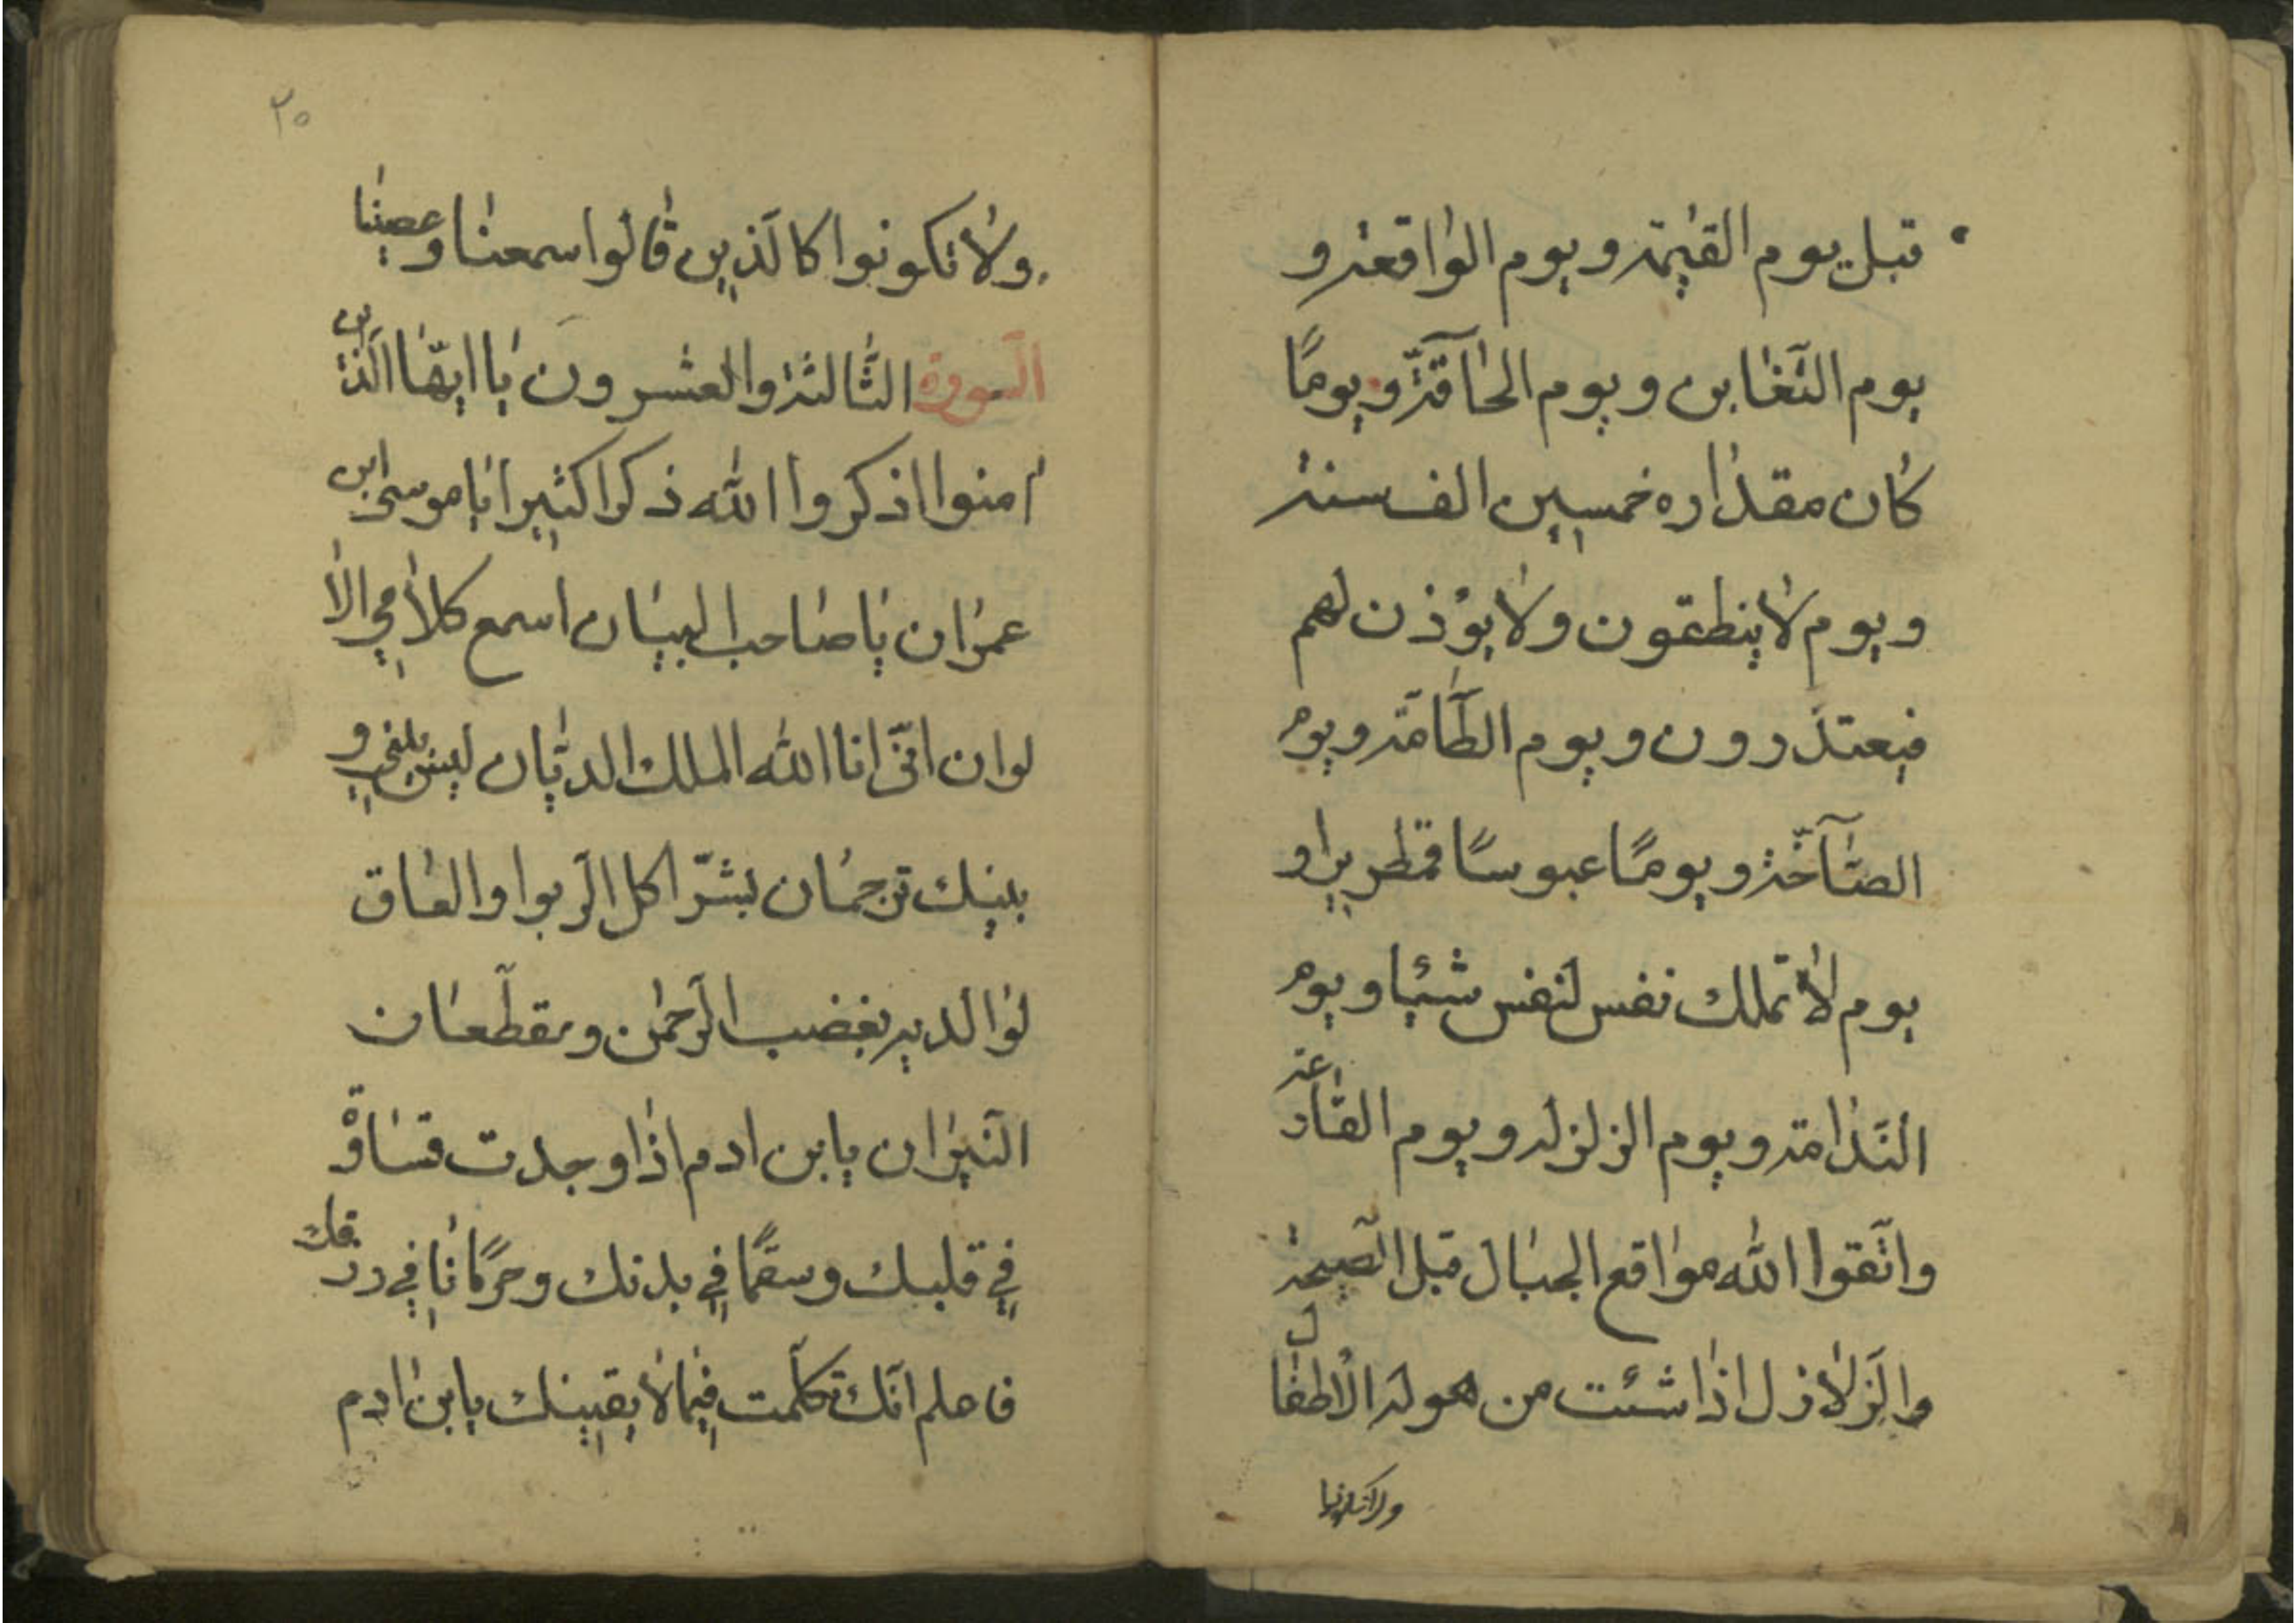 قبل يوم القيٰمة ويوم الواقعة و
يوم التّغابن ويوم الحآقّة ويومًا
كان مقداره خمسين الف سنة
ويوم لا ينطقون ولا يؤذن لهم
فيعتذرون ويوم الطّامّة ويوم
الصّآخّة ويومًا عبوسًا قمطريرا و
يوم لا تملك نفس لنفس شيئا ويوم
النّدامة ويوم الزلزلة ويوم القارعة
واتّقوا الله مواقع الجبال قبل الصّيحة
والزّلازل اذا شئت من هوله الاطفال
ولا تكونوا
٢٥
ولا تكونوا كالّذين قالوا سمعنا وعصينا
السورة الثّالثة والعشرون يا ايّها الّذين
امنوا اذكروا الله ذكرا كثيرا يا موسى ابن
عمران يا صاحب البيان اسمع كلامي الا
لوان انّى انا الله الملك الديّان ليس بيني و
بينك ترجمان بشّر اكل الرّبوا والعاق
لوالديه بغضب الرّحمٰن ومقطّعات
النّيران يابن ادم اذا وجدت قساوة
في قلبك وسقمًا في بدنك وحرمانا في رزقك
فاعلم انّك تكلّمت فيما لا يعنينك يابن ادم